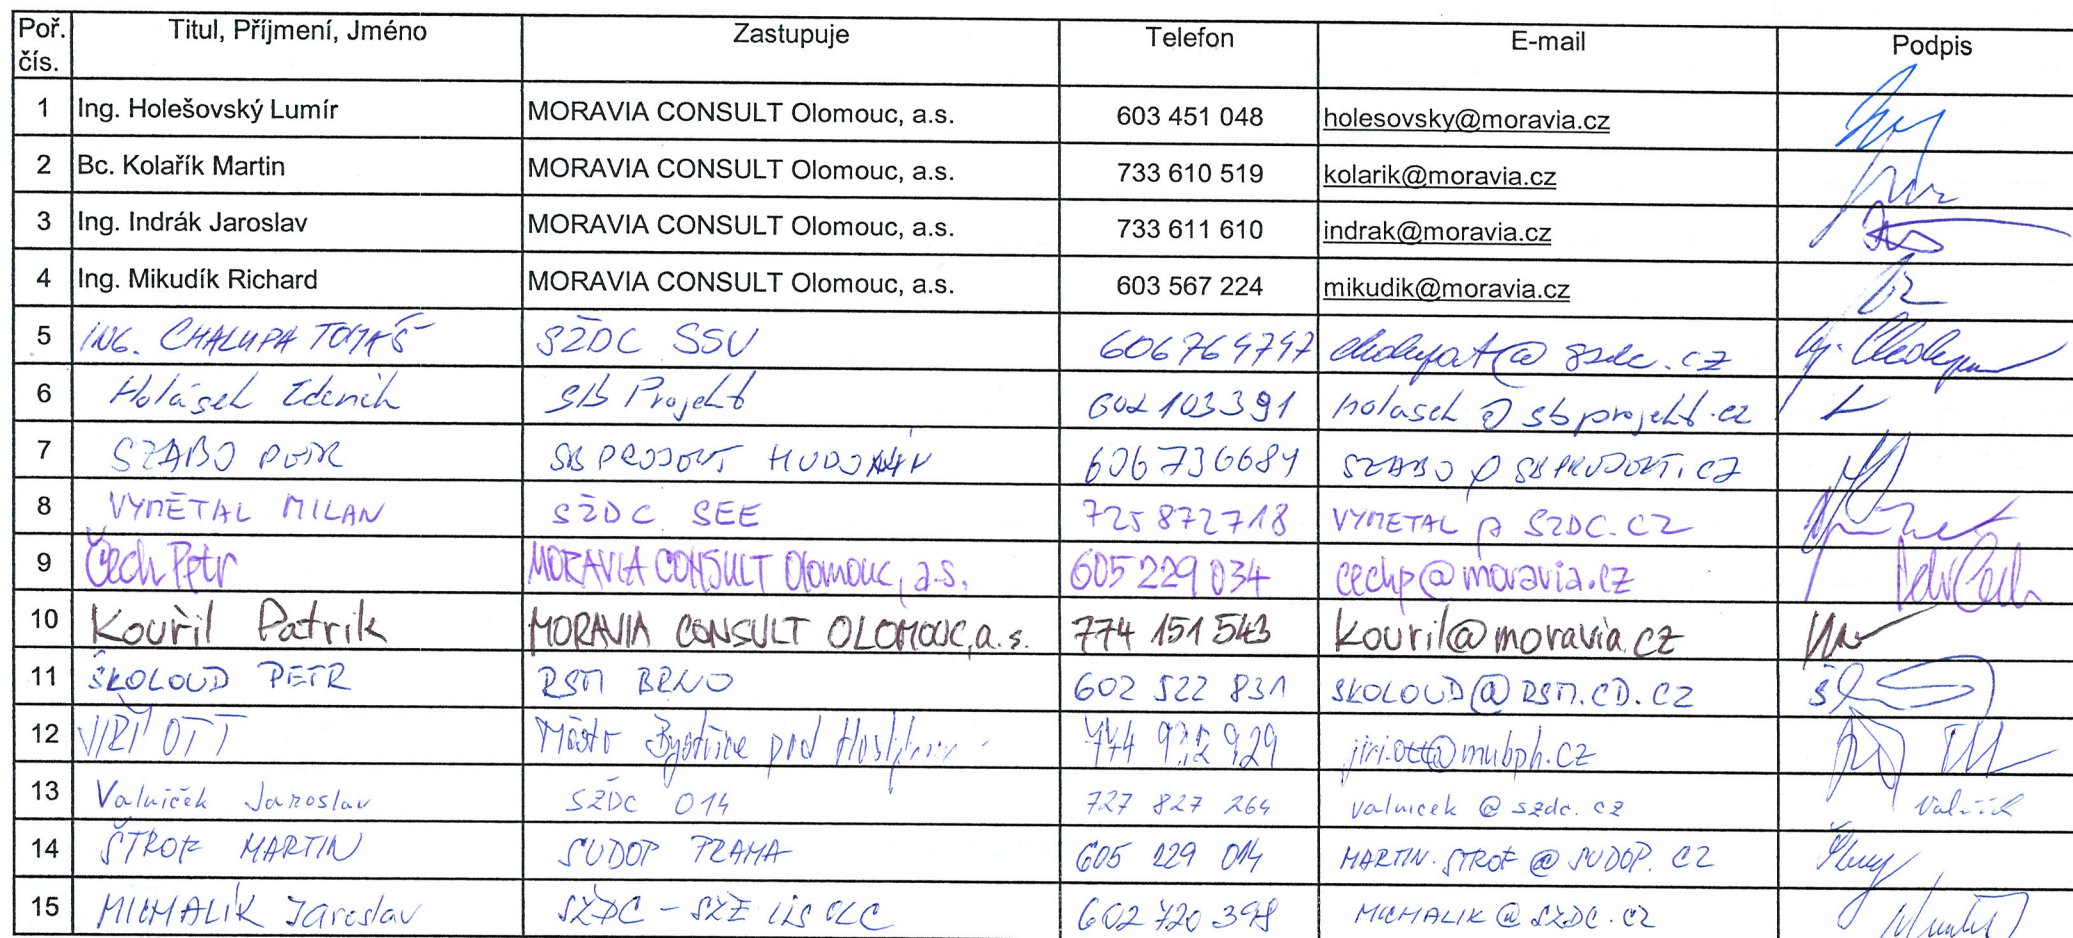 Poř. čís. Titul, Příjmení, Jméno Zastupuje Telefon E-mail Podpis
1 Ing. Holešovský Lumír MORAVIA CONSULT Olomouc, a.s. 603 451 048 holesovsky@moravia.cz
2 Bc. Kolařík Martin MORAVIA CONSULT Olomouc, a.s. 733 610 519 kolarik@moravia.cz
3 Ing. Indrák Jaroslav MORAVIA CONSULT Olomouc, a.s. 733 611 610 indrak@moravia.cz
4 Ing. Mikudík Richard MORAVIA CONSULT Olomouc, a.s. 603 567 224 mikudik@moravia.cz
5 ING. CHALUPA TOMÁŠ SŽDC SSV 606769797 chalupat@szdc.cz
6 Holásek Zdeněk SB Projekt 602 103 391 holasek@sbprojekt.cz
7 SZABO PETR SB PROJEKT 606736681
8 VYMĚTAL MILAN SŽDC SEE 725 872 718 VYMETAL @ SZDC.CZ
9 Čech Petr MORAVIA CONSULT Olomouc, a.s. 605 229 034 cechp@moravia.cz Petr Čech
10 Kouřil Patrik MORAVIA CONSULT OLOMOUC, a.s. 774 151 543 kouril@moravia.cz
11 ŠKOLOUD PETR RSM BRNO 602 522 831 SKOLOUD@RSM.CD.CZ
12 JIŘÍ OTT Město Bystřice pod Hostýnem jiri.ott@mubph.cz
13 Valníček Jaroslav SŽDC 014 727 827 264 valnicek @ szdc.cz
14 ŠTROF MARTIN SUDOP PRAHA 605 229 014 MARTIN.STROF @ SUDOP.CZ
15 MICHALÍK Jaroslav SŽDC - SŽE 602 720 398 MICHALIK @ SZDC.CZ